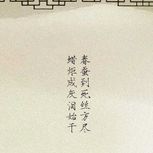 春蚕到死丝方尽
蜡炬成灰泪始干